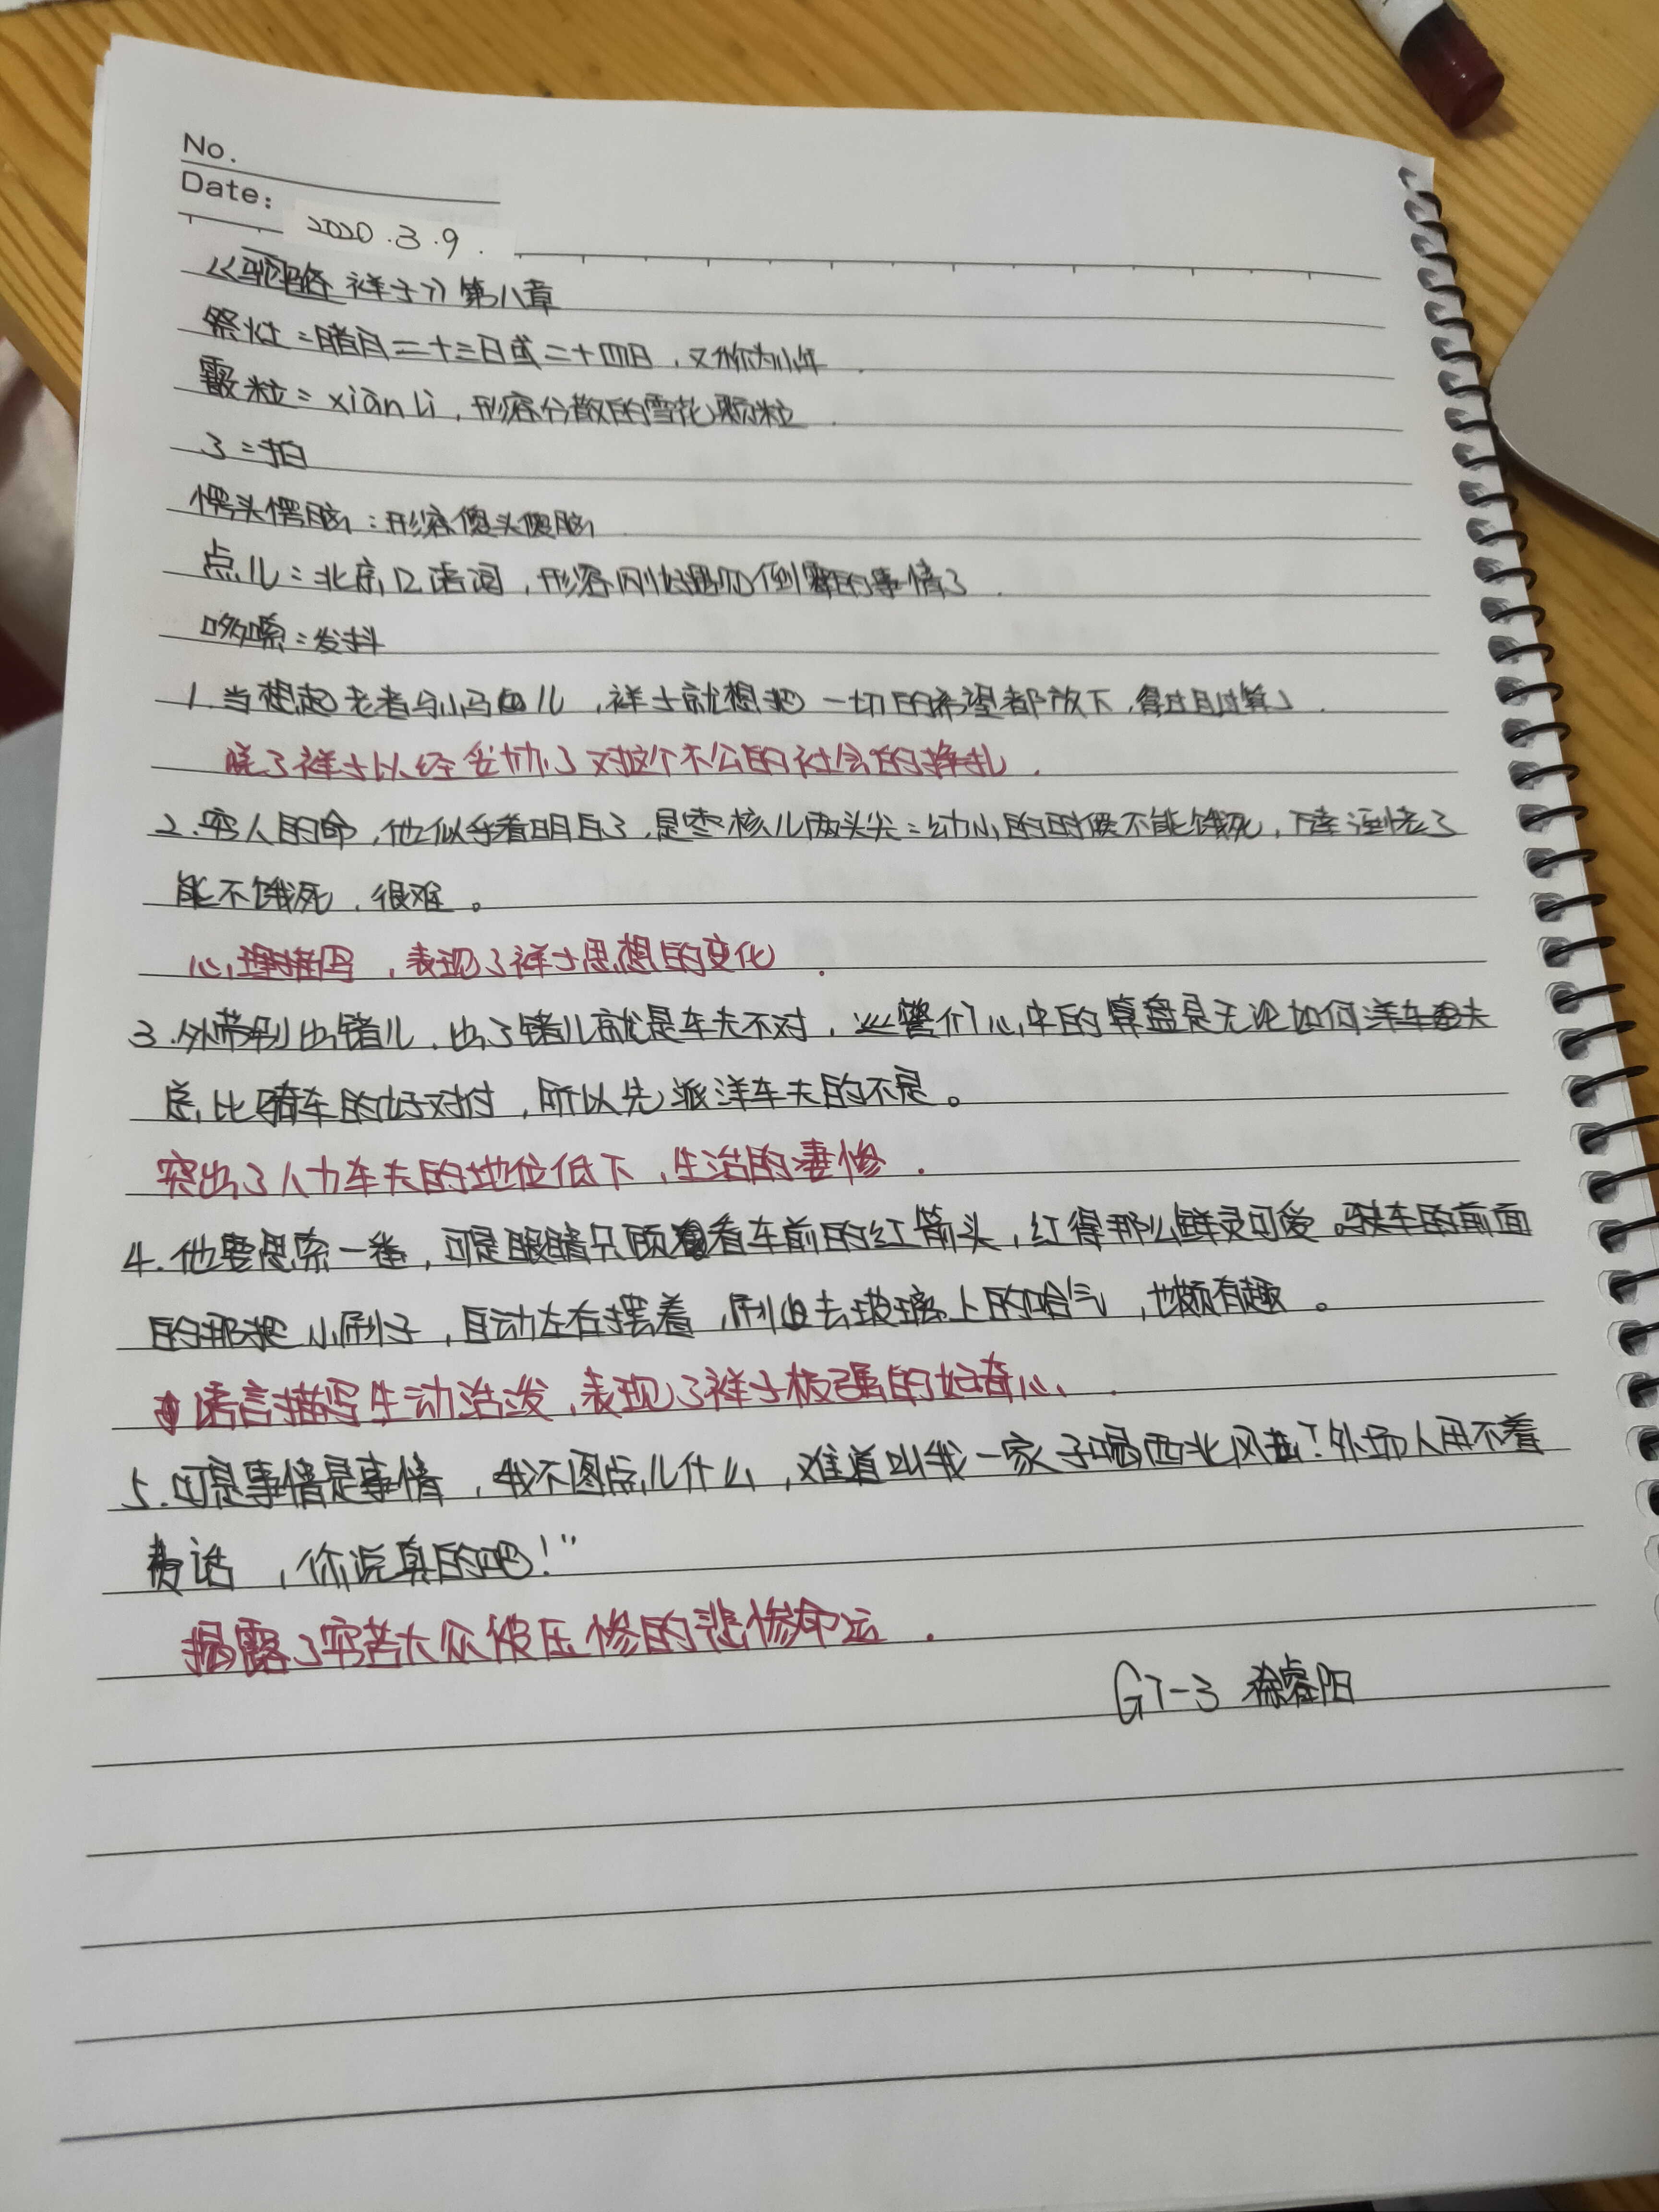 No.
Date:
2020.3.9.
《骆驼祥子》第八章
祭灶:腊月二十三日或二十四日,又称为小年.
霰粒:xiàn lì,形容分散的雪花颗粒.
:拍
愣头愣脑:形容傻头傻脑
点儿:北京口语词,形容刚好遇见倒霉的事情了.
哆嗦:发抖
1.当想起老者与小马儿,祥子就想把一切的希望都放下,得过且过算了.
祥子以经妥协了对这个不公的社会的挣扎.
2.穷人的命,他似乎看明白了,是枣核儿两头尖:幼小的时候不能饿死,万幸到老了
能不饿死,很难。
心理描写,表现了祥子思想的变化.
3.外带别出错儿,出了错儿就是车夫不对,巡警们心中的算盘是无论如何洋车夫
总比骑车的好对付,所以先派洋车夫的不是。
突出了人力车夫的地位低下,生活的凄惨.
4.他要思索一番,可是眼睛只顾看车前的红箭头,红得那么鲜灵可爱。驶车的前面
的那把小刷子,自动左右摆着,刷去玻璃上的哈气,也颇有趣。
语言描写生动活泼,表现了祥子极强的好奇心.
5.可是事情是事情,我不图点儿什么,难道叫我一家子喝西北风去?外场人用不着
费话,你说真的吧!”
揭露了穷苦大众被压惨的悲惨命运.
G7-3 徐睿阳